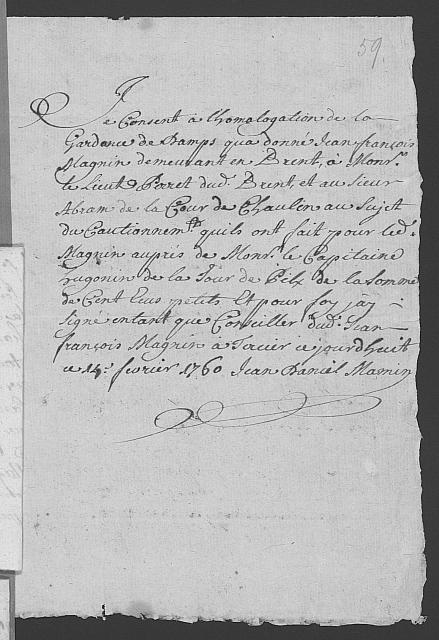 59.
Je Consent à l'homologation de la
Gardence de Damps qua donné Jean françois
Magnin demeurant en Brent, à Monsr.
le Lieut Poret dud. Brent, et au Sieur
Abram de la Cour de Chaulin au Sujet
du Cautionnemt. quils ont fait pour led.
Magnin auprés de Monsr. le Capitaine
hugonin de la Tour de Peilz de la Somme
de Cent Ecus petits Et pour foy jay
Signé entant que Conseiller dud. Jean
françois Magnin à ce jourdhuit
ce 14e. fevrier 1760 Jean Daniel Mamin